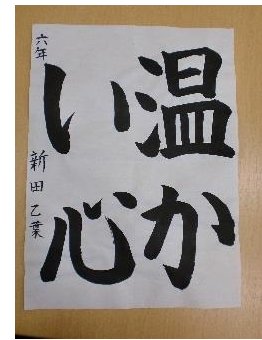 温か
い心
六年
新田乙葉